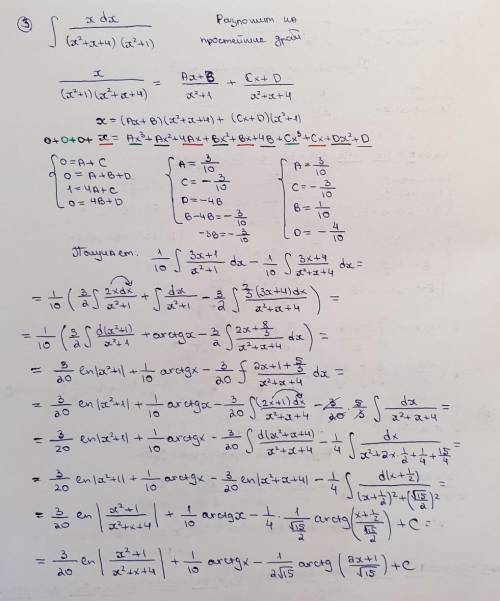 ③ ∫ x dx / (x²+x+4)(x²+1) Разложит на простейшие дроб
x / (x²+1)(x²+x+4) = Ax+B / x²+1 + Cx+D / x²+x+4
x = (Ax+B)(x²+x+4) + (Cx+D)(x²+1)
0+0+0+ x = Ax³+Ax²+4Ax+Bx²+Bx+4B+Cx³+Cx+Dx²+D
{ 0=A+C { A= 3/10 { A= 3/10
0=A+B+D C= -3/10 C= -3/10
1=4A+C D=-4B B= 1/10
0=4B+D B-4B= -3/10 D= -4/10
-3B= -3/10
Получает: 1/10 ∫ 3x+1 / x²+1 dx - 1/10 ∫ 3x+4 / x²+x+4 dx =
= 1/10 ( 3/2 ∫ 2xdx / x²+1 + ∫ dx / x²+1 - 3/2 ∫ 2/3 (3x+4)dx / x²+x+4 ) =
= 1/10 ( 3/2 ∫ d(x²+1) / x²+1 + arctgx - 3/2 ∫ 2x+ 8/3 / x²+x+4 dx ) =
= 3/20 ln|x²+1| + 1/10 arctgx - 3/20 ∫ 2x+1+ 5/3 / x²+x+4 dx =
= 3/20 ln|x²+1| + 1/10 arctgx - 3/20 ∫ (2x+1)dx / x²+x+4 - 3/20 · 5/3 ∫ dx / x²+x+4 =
= 3/20 ln|x²+1| + 1/10 arctgx - 3/20 ∫ d(x²+x+4) / x²+x+4 - 1/4 ∫ dx / x²+2x·1/2+1/4+15/4 =
= 3/20 ln|x²+1| + 1/10 arctgx - 3/20 ln|x²+x+4| - 1/4 ∫ d(x+1/2) / (x+1/2)²+(√15/2)² =
= 3/20 ln| x²+1 / x²+x+4 | + 1/10 arctgx - 1/4 · 1 / √15/2 arctg( x+1/2 / √15/2 ) + C =
= 3/20 ln| x²+1 / x²+x+4 | + 1/10 arctgx - 1 / 2√15 arctg ( 2x+1 / √15 ) + C